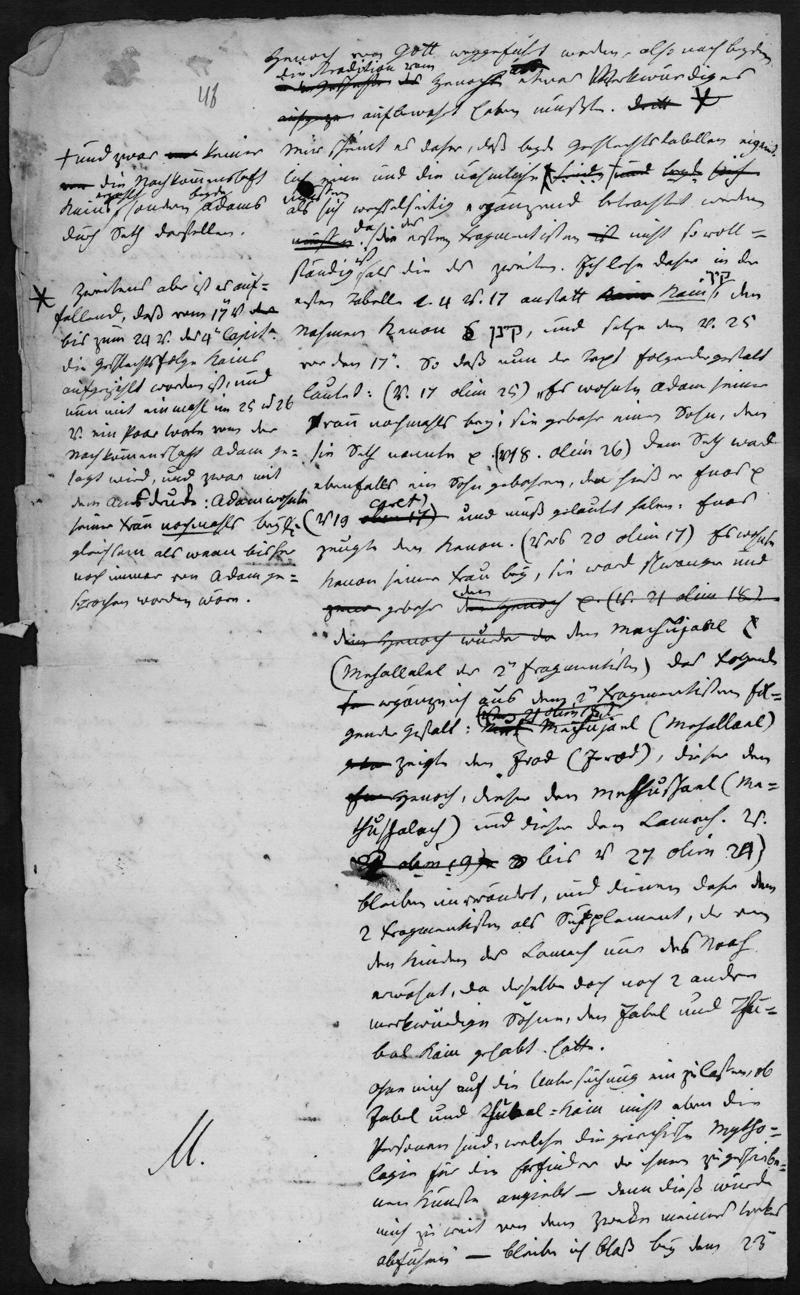 48
Henoch von Gott weggeführt worden, also nach beyden
die Tradition vom
Henoch etwas Merkwürdiges
aufbewahrt haben mußte.
Mir scheint es daher, daß beyde Geschlechtstabellen eigent-
lich eine und die nähmliche
als sich wechselseitig ergänzend betrachtet werden
müßten, da die des ersten Fragmentisten nicht so voll-
ständig ist, als die des zweiten. Ich lese daher in der
ersten Tabelle c. 4 V. 17 anstatt Kain קין den
Nahmen Kenon קינן, und setze den V. 25
vor den 17. So daß nun der Text folgendergestalt
lautet: (V. 17 olim 25) „Es wohnte Adam seiner
Frau nochmahls bey; sie gebahr einen Sohn, den
sie Seth nannte (V 18. olim 26) dem Seth ward
ebenfalls ein Sohn gebohren, den hieß er Enos
(V 19 und muß gelautet haben: Enos
zeugte den Kenon. (Vers 20 olim 17) Es wohnte
Kenon seiner Frau bey, sie ward schwanger und
gebahr den
den Mechujael
(Mahallalel des 2 Fragmentisten) das folgende
ergänze ich aus dem 2 Fragmentisten fol-
gender Gestalt: Mechujael (Mahallael)
zeugte den Irad (Jered), dieser den
Henoch, dieser den Methusael (Me-
thuschalach) und dieser den Lamech. V.
bis V 27 olim 24)
bleiben unverändert, und dienen daher dem
2 Fragmentisten als Supplement, der von
den Kindern des Lamech nur des Noah
erwähnt, da derselbe doch noch 2 andere
merkwürdige Söhne, den Jabel und Thu-
bal Kain gehabt hatte.
Ohne mich auf die Untersuchung einzulassen, ob
Jabel und Thubal-Kain nicht eben die
Personen sind, welche die griechische Mytho-
logie für die Erfinder der ihnen zugeschriebe-
nen Künste angiebt — denn dieß würde
mich zu weit von dem Zwecke meines Werkes
abführen — bleibe ich bloß bey dem 25
+ und zwar keiner
die Nachkommenschaft
Kains, sondern beyde Adams
durch Seth darstellen.
* Zweitens aber ist es auf-
fallend, daß vom 17 V.
bis zum 24 V. des 4 Capit.
die Geschlechtsfolge Kains
aufgezählt worden ist, und
nun mit einmahl im 25 u 26
V. ein paar Worte von der
Nachkommenschaft Adam ge-
sagt wird, und zwar mit
dem Ausdruck: Adam wohnte
seiner Frau nochmahls bey
gleichsam als wenn bisher
noch immer von Adam ge-
sprochen worden wäre.
M.